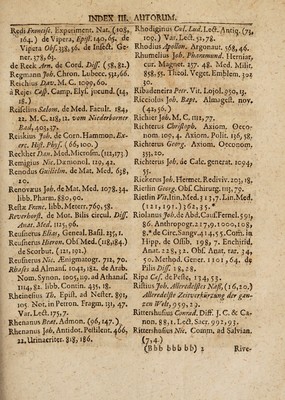 INDEX III. AUTORUM.
Redi Francisc. Experiment. Nat. (105,
164.) de Vipera, Epist. 140, 65. de
Vipera Obs. 358, 56. de Insect. Gener.
378, 63.
de Reek Abr. de Cord. Diss. 58, 81.
Regmann Joh. Chron. Lubecc. 512, 66.
Reschius Dan. M. C. 1099, 60.
à Reje Cass. Camp. Elys. jucund. (14,
18.)
Reiselius Salom. de Med. Facult. 184,
22. M. C. 218, 12. vom Niederborner
Bad, 402, 17.
Reiskius Joh. de Corn. Hammon. Exerc.
Hist. Phys. (66, 100.)
Rechbar Dan. Mod. Microsm. (112, 173.)
Remigius Nic. Dæmonol. 119, 42.
Renodus Guilielm. de Mat. Med. 658,
20.
Renovæus Joh. de Mat. Med. 1078. 34.
libb. Pharm. 880, 90.
Restæ Franc. libb. Meteor. 769, 58.
Reverhorst. de Mot. Bilis circul. Diss.
Anat. Med. 1125, 96.
Reusnerus Elias, Geneal. Basil. 235, 1.
Reusnerus Hieron. Obs Med. (118, 184.)
de Scorbut. (121, 192.)
Reusnerus Nic. Ænigmatogr. 712, 70.
Rhases ad Almans. 1042, 182. de Arab.
Nom. Synon. 1005, 19. ad Athanal.
1114, 82. libb. Contin. 435, 18.
Rheinesius Th. Epist. ad Nester. 891,
105. Net. in Petron. Fragm. 131, 47.
Var. Lect. 175, 7.
Rhenanus Beat. Admon. (96, 147.)
Rhenanus Joh. Antidot. Pestilent. 466,
22. Urinacriter. 818, 186.
Rhodiginus Cœl. Lud. Lect. Antiq. (73,
109.) Var. Lect. 52, 78.
Rhodius Apollon. Argonaut. 568, 46.
Rhumelius Joh. Pharamund. Herniar.
cur. Magnet. 237. 48. Med. Milit.
858. 55. Theol. Veget. Emblem. 302
30.
Ribadeneira Petr. Vit. Lojol. 950, 13.
Ricciolus Joh. Bapt. Almagest. nov.
(42, 56.)
Richier Joh. M. C. 1112, 77.
Richterus Christoph. Axiom. Oeconom.
109, 4. Axiom. Polit. 116, 58.
Richterus Georg. Axiom. Oeconom.
351, 20.
Richterus Joh. de Calc. generat. 1094,
55.
Rickerus Joh. Hermet. Rediviv. 203, 18.
Rietlin Georg. Obs. Chirurg. 1113, 79.
Rietlin Vit. Lin. Med. 313, 7. Lin. Med.
(121, 191.) 362, 35.
Riolanus Joh. de Abd. Cauf. Fernel. 591,
86. Anthropogr. 217, 9. 1000, 108,
8. de Circ. Sangv. 414, 55. Com. in
Hipp. de Ossib. 198, 7. Enchirid.
Anat. 228, 32. Obs. Anat. rar. 34,
50. Method. Gener. 1101, 64. de
Pilis Diss. 18, 28.
Ripa Cæs. de Peste, 134, 53.
Ristius Joh. Alleredelstes Naß, (16, 20.)
Alleredelste Zeitverkürzung der gantzen
Welt, 959, 29.
Rittershusius Conrad. Diff. J. C. & Canon.
88, 1. Lect. Sacr. 992, 93.
Rittershusius Nic. Comm. ad Salvian.
(7, 4.)
(Bbb bbb bb) 2
Rive-